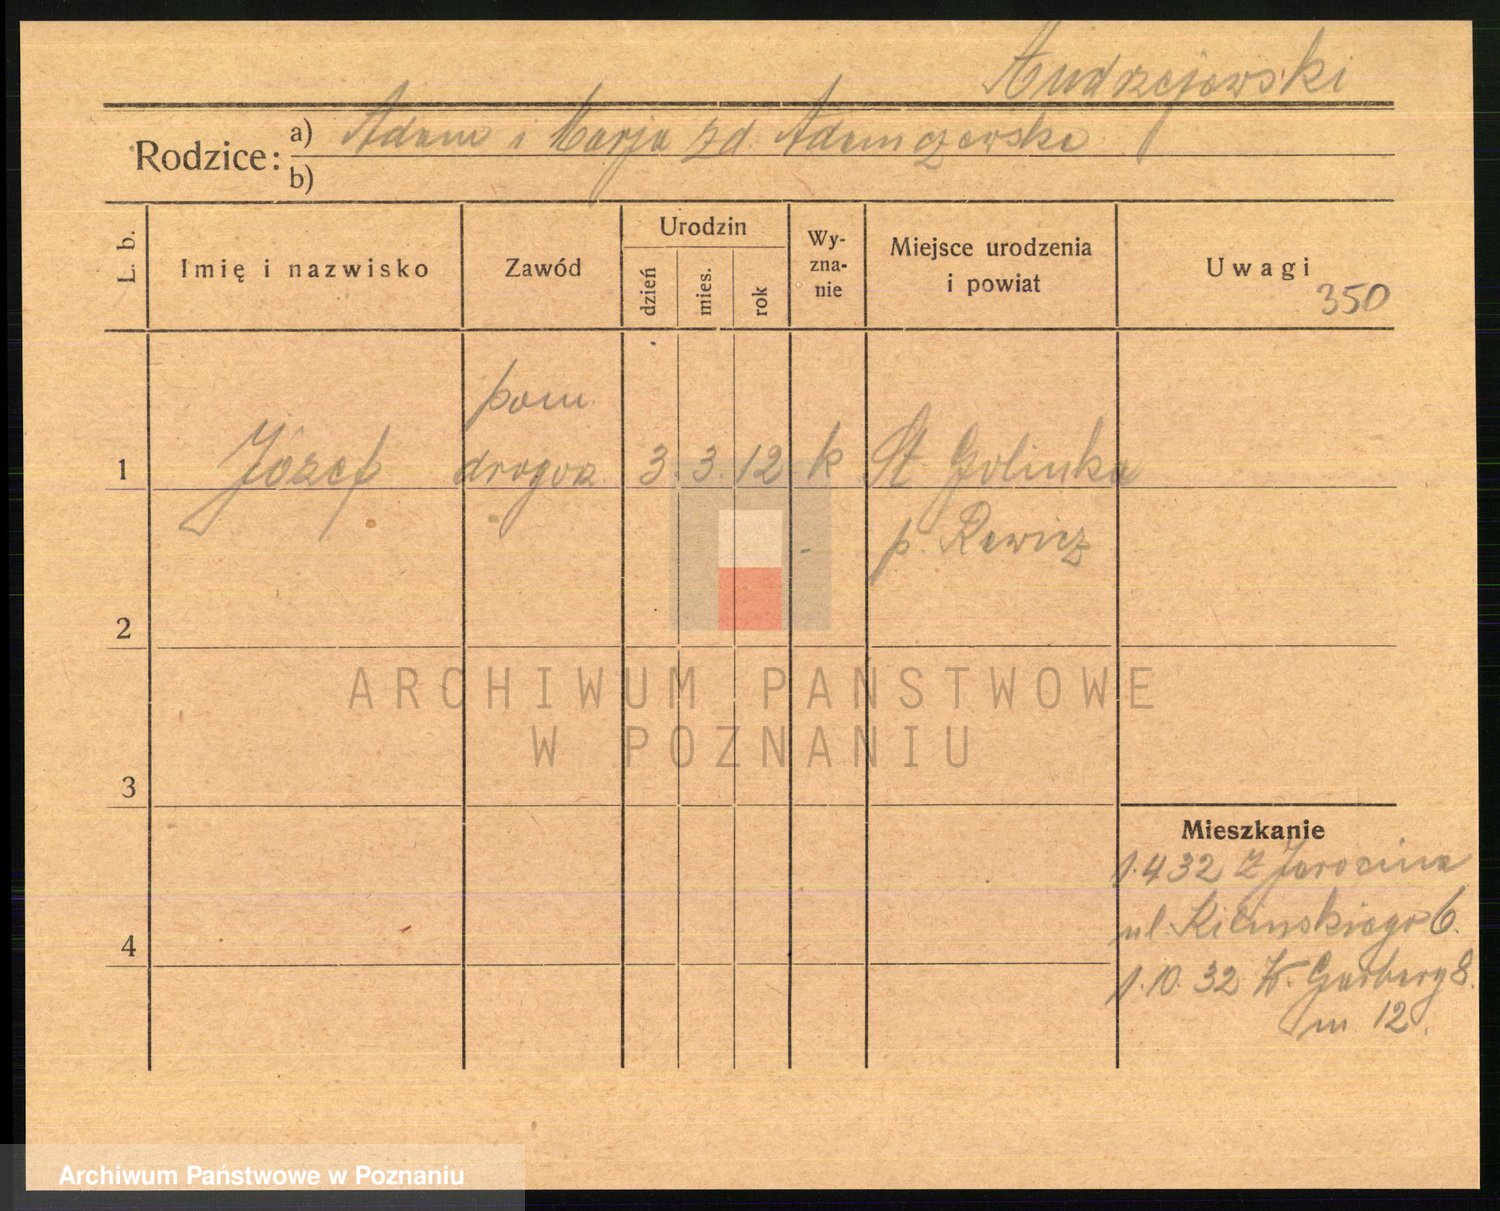 Andrzejewski
Rodzice: a) Adam i Marja zd Adamczewska
b)
L. b.
Imię i nazwisko
Zawód
Urodzin
dzień
mies.
rok
Wy-
zna-
nie
Miejsce urodzenia
i powiat
Uwagi
350
pom
1 Józef drogor. 3. 3. 12 k St Golinka
p. Rawicz
2
ARCHIWUM PAŃSTWOWE
W POZNANIU
3
Mieszkanie
1.4 32 z Jarocina
ul. Kilinskiego 6.
4
1.10. 32 W. Garbary 8.
m 12.
Archiwum Państwowe w Poznaniu